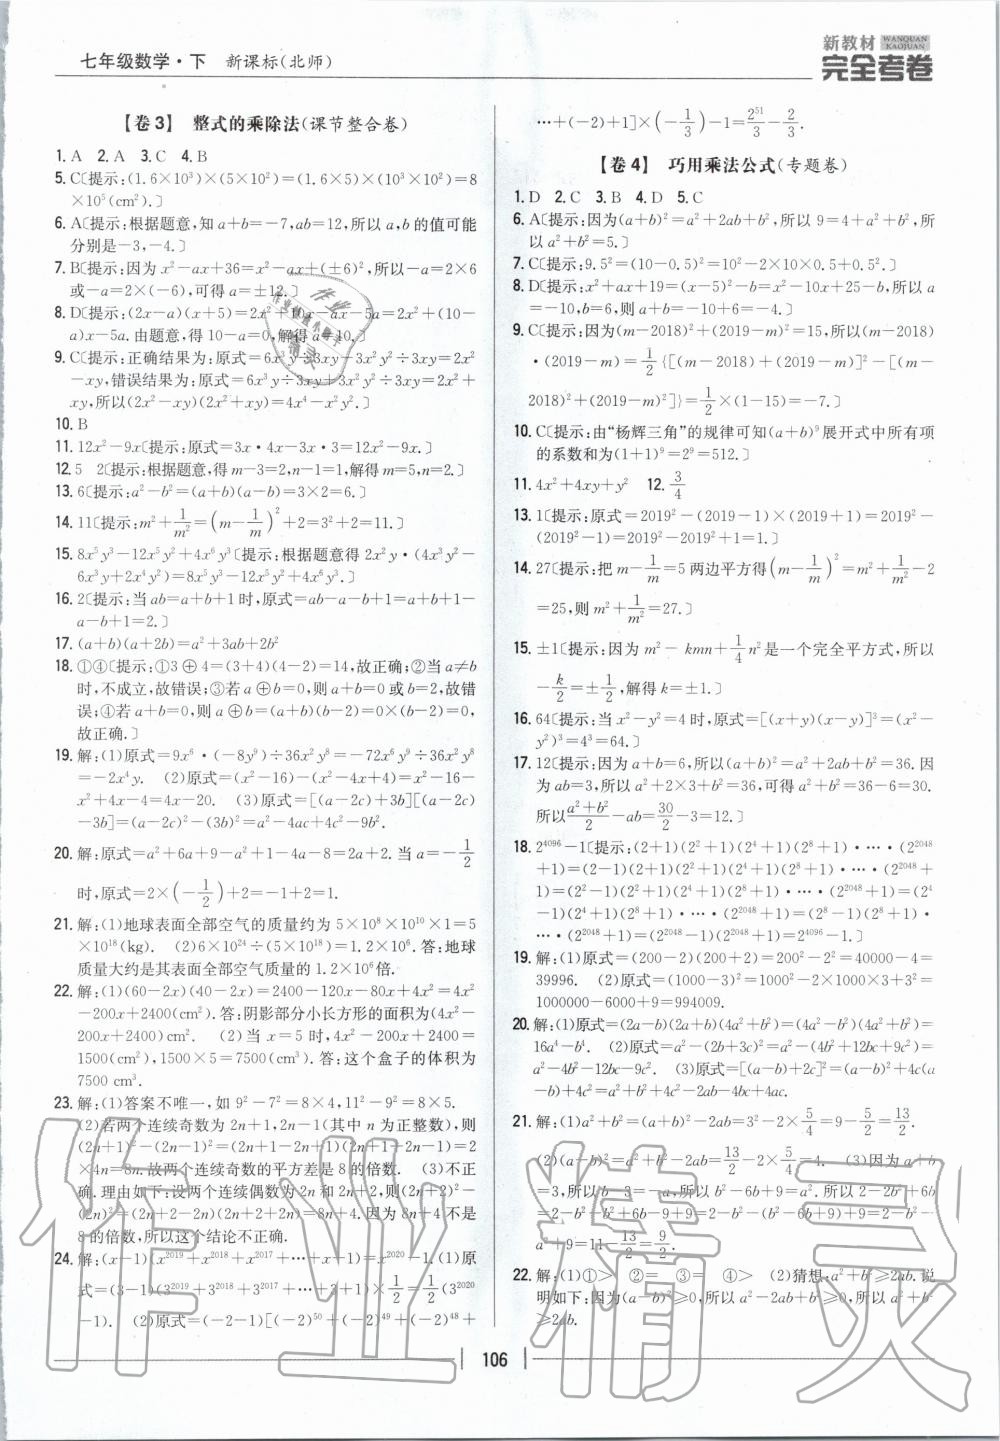 七年级数学·下 新课标(北师)
新教材 WANQUAN KAOJUAN
完全考卷
【卷3】 整式的乘除法(课节整合卷)
1. A 2. A 3. C 4. B
5. C〔提示:(1.6×10³)×(5×10²)=(1.6×5)×(10³×10²)=8
×10⁵(cm²).〕
6. A〔提示:根据题意,知a+b=-7,ab=12,所以a,b的值可能
分别是-3,-4.〕
7. B〔提示:因为x²-ax+36=x²-ax+(±6)²,所以-a=2×6
或-a=2×(-6),可得a=±12.〕
8. D〔提示:(2x-a)(x+5)=2x²+10x-ax-5a=2x²+(10-
a)x-5a.由题意,得10-a=0,解得a=10.〕
9. C〔提示:正确结果为:原式=6x³y÷3xy-3x²y²÷3xy=2x²
-xy,错误结果为:原式=6x³y÷3xy+3x²y²÷3xy=2x²+
xy,所以(2x²-xy)(2x²+xy)=4x⁴-x²y².〕
10. B
11. 12x²-9x〔提示:原式=3x·4x-3x·3=12x²-9x.〕
12. 5 2〔提示:根据题意,得m-3=2,n-1=1,解得m=5,n=2.〕
13. 6〔提示:a²-b²=(a+b)(a-b)=3×2=6.〕
14. 11〔提示:m²+1/m²=(m-1/m)²+2=3²+2=11.〕
15. 8x⁵y³-12x⁵y²+4x⁶y³〔提示:根据题意得2x²y·(4x³y²-
6x³y+2x⁴y²)=8x⁵y³-12x⁵y²+4x⁶y³.〕
16. 2〔提示:当ab=a+b+1时,原式=ab-a-b+1=a+b+1-
a-b+1=2.〕
17. (a+b)(a+2b)=a²+3ab+2b²
18. ①④〔提示:①3⊕4=(3+4)(4-2)=14,故正确;②当a≠b
时,不成立,故错误;③若a⊕b=0,则a+b=0或b=2,故错
误;④若a+b=0,则a⊕b=(a+b)(b-2)=0×(b-2)=0,
故正确.〕
19. 解:(1)原式=9x⁶·(-8y⁹)÷36x²y⁸=-72x⁶y⁹÷36x²y⁸
=-2x⁴y. (2)原式=(x²-16)-(x²-4x+4)=x²-16-
x²+4x-4=4x-20. (3)原式=[(a-2c)+3b][(a-2c)
-3b]=(a-2c)²-(3b)²=a²-4ac+4c²-9b².
20. 解:原式=a²+6a+9-a²+1-4a-8=2a+2.当a=-1/2
时,原式=2×(-1/2)+2=-1+2=1.
21. 解:(1)地球表面全部空气的质量约为5×10⁸×10¹⁰×1=5
×10¹⁸(kg). (2)6×10²⁴÷(5×10¹⁸)=1.2×10⁶.答:地球
质量大约是其表面全部空气质量的1.2×10⁶倍.
22. 解:(1)(60-2x)(40-2x)=2400-120x-80x+4x²=4x²
-200x+2400(cm²).答:阴影部分小长方形的面积为(4x²-
200x+2400)cm². (2)当x=5时,4x²-200x+2400=
1500(cm²),1500×5=7500(cm³).答:这个盒子的体积为
7500 cm³.
23. 解:(1)答案不唯一,如9²-7²=8×4,11²-9²=8×5.
(2)若两个连续奇数为2n+1,2n-1(其中n为正整数),则
(2n+1)²-(2n-1)²=(2n+1+2n-1)(2n+1-2n+1)=2
×4n=8n.故两个连续奇数的平方差是8的倍数. (3)不正
确.理由如下:设两个连续偶数为2n和2n+2,则(2n+2)²-
(2n)²=(2n+2-2n)(2n+2+2n)=8n+4.因为8n+4不是
8的倍数,所以这个结论不正确.
24. 解:(x-1)(x²⁰¹⁹+x²⁰¹⁸+x²⁰¹⁷+…+x+1)=x²⁰²⁰-1.(1)原
式=(3-1)(3²⁰¹⁹+3²⁰¹⁸+3²⁰¹⁷+…+3+1)×1/2=1/2(3²⁰²⁰
-1). (2)原式=(-2-1)[(-2)⁵⁰+(-2)⁴⁹+(-2)⁴⁸+
…+(-2)+1]×(-1/3)-1=2⁵¹/3-2/3.
【卷4】 巧用乘法公式(专题卷)
1. D 2. C 3. B 4. D 5. C
6. A〔提示:因为(a+b)²=a²+2ab+b²,所以9=4+a²+b²,所
以a²+b²=5.〕
7. C〔提示:9.5²=(10-0.5)²=10²-2×10×0.5+0.5².〕
8. D〔提示:x²+ax+19=(x-5)²-b=x²-10x+25-b,所以a
=-10,b=6,则a+b=-10+6=-4.〕
9. C〔提示:因为(m-2018)²+(2019-m)²=15,所以(m-2018)
·(2019-m)=1/2{[(m-2018)+(2019-m)]²-[(m-
2018)²+(2019-m)²]}=1/2×(1-15)=-7.〕
10. C〔提示:由“杨辉三角”的规律可知(a+b)⁹展开式中所有项
的系数和为(1+1)⁹=2⁹=512.〕
11. 4x²+4xy+y² 12. 3/4
13. 1〔提示:原式=2019²-(2019-1)×(2019+1)=2019²-
(2019²-1)=2019²-2019²+1=1.〕
14. 27〔提示:把m-1/m=5两边平方得(m-1/m)²=m²+1/m²-2
=25,则m²+1/m²=27.〕
15. ±1〔提示:因为m²-kmn+1/4n²是一个完全平方式,所以
-k/2=±1/2,解得k=±1.〕
16. 64〔提示:当x²-y²=4时,原式=[(x+y)(x-y)]³=(x²-
y²)³=4³=64.〕
17. 12〔提示:因为a+b=6,所以(a+b)²=a²+2ab+b²=36.因
为ab=3,所以a²+2×3+b²=36,可得a²+b²=36-6=30.
所以(a²+b²)/2-ab=30/2-3=12.〕
18. 2⁴⁰⁹⁶-1〔提示:(2+1)(2²+1)(2⁴+1)(2⁸+1)·…·(2²⁰⁴⁸
+1)=(2-1)(2+1)(2²+1)(2⁴+1)(2⁸+1)·…·(2²⁰⁴⁸
+1)=(2²-1)(2²+1)(2⁴+1)(2⁸+1)·…·(2²⁰⁴⁸+1)=(2⁴
-1)(2⁴+1)(2⁸+1)·…·(2²⁰⁴⁸+1)=(2⁸-1)(2⁸+1)·
…·(2²⁰⁴⁸+1)=(2²⁰⁴⁸-1)(2²⁰⁴⁸+1)=2⁴⁰⁹⁶-1.〕
19. 解:(1)原式=(200-2)(200+2)=200²-2²=40000-4=
39996. (2)原式=(1000-3)²=1000²-2×1000×3+3²=
1000000-6000+9=994009.
20. 解:(1)原式=(2a-b)(2a+b)(4a²+b²)=(4a²-b²)(4a²+b²)=
16a⁴-b⁴. (2)原式=a²-(2b+3c)²=a²-(4b²+12bc+9c²)=
a²-4b²-12bc-9c². (3)原式=[(a-b)+2c]²=(a-b)²+4c(a
-b)+4c²=a²+b²+4c²-2ab-4bc+4ac.
21. 解:(1)a²+b²=(a+b)²-2ab=3²-2×5/4=9-5/2=13/2.
(2)(a-b)²=a²+b²-2ab=13/2-2×5/4=4. (3)因为a+b
=3,所以b-3=-a,所以b²-6b+9=a².所以2-2b²+6b
=2-b²-b²+6b-9+9=2-b²-(b²-6b+9)+9=2-b²-
a²+9=11-13/2=9/2.
22. 解:(1)①> ②= ③> ④> (2)猜想:a²+b²≥2ab.说
明如下:因为(a-b)²≥0,所以a²-2ab+b²≥0,所以a²+b²
≥2ab.
106
作业精灵